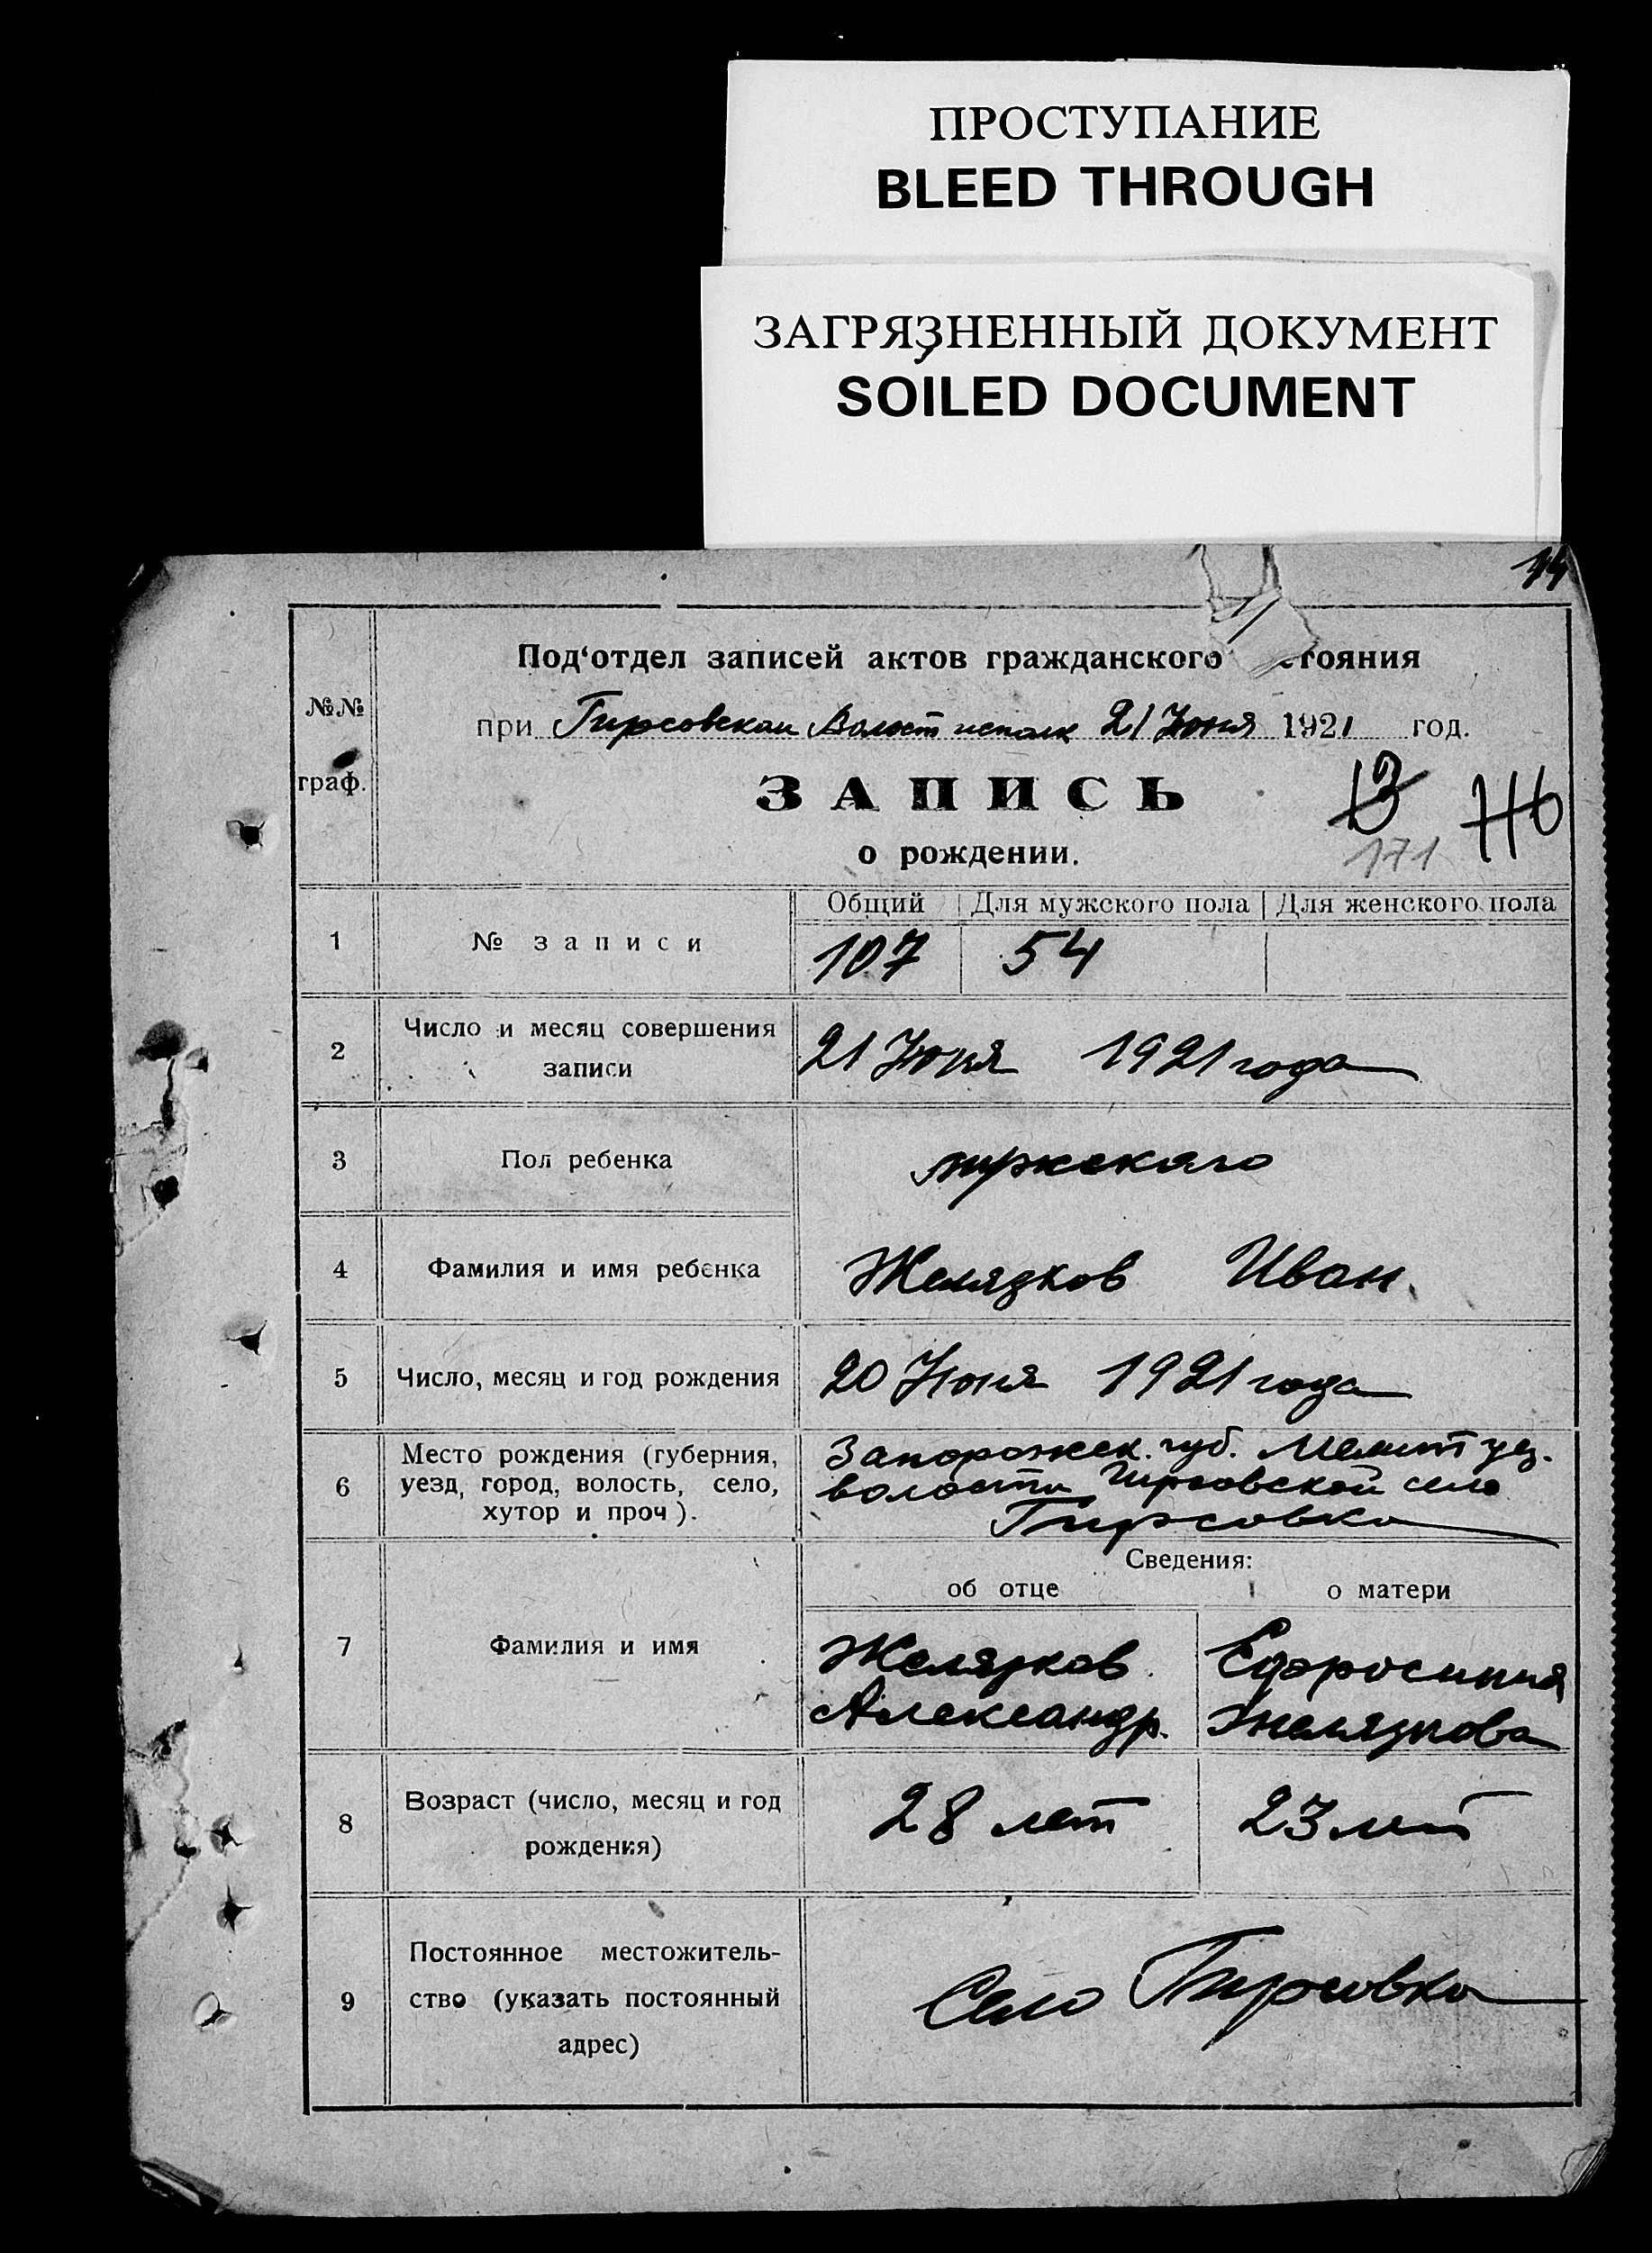 ПРОСТУПАНИЕ
BLEED THROUGH
ЗАГРЯЗНЕННЫЙ ДОКУМЕНТ
SOILED DOCUMENT
14
Под‘отдел записей актов гражданского стояния
№№ граф.
при Гирсовском Волост исполк 21 Июня 1921 год.
ЗАПИСЬ
13
о рождении.
171
Общий Для мужского пола Для женского пола
1 № записи 107 54
2 Число и месяц совершения 21 Июня 1921 года
записи
3 Пол ребенка мужскаго
4 Фамилия и имя ребенка Желязков Иван
5 Число, месяц и год рождения 20 Июня 1921 года
6 Место рождения (губерния, Запорожск. губ. Мелит уез.
уезд, город, волость, село, волости Гирсовской село
хутор и проч). Гирсовка
Сведения:
об отце о матери
7 Фамилия и имя Желязков Ефросиния
Александр. Желязкова
8 Возраст (число, месяц и год 28 лет 23 лет
рождения)
9 Постоянное местожитель-
ство (указать постоянный Село Гирсовка
адрес)